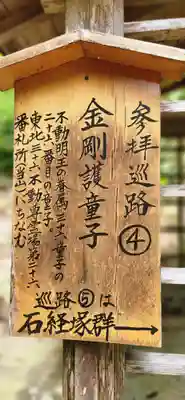 参拝巡路④
金剛護童子
不動明王の眷属三十六童子の
二十六番目の童子
東北三十六不動尊霊場第二十六
番札所(当山)にちなむ
巡路⑤は
石経塚群→